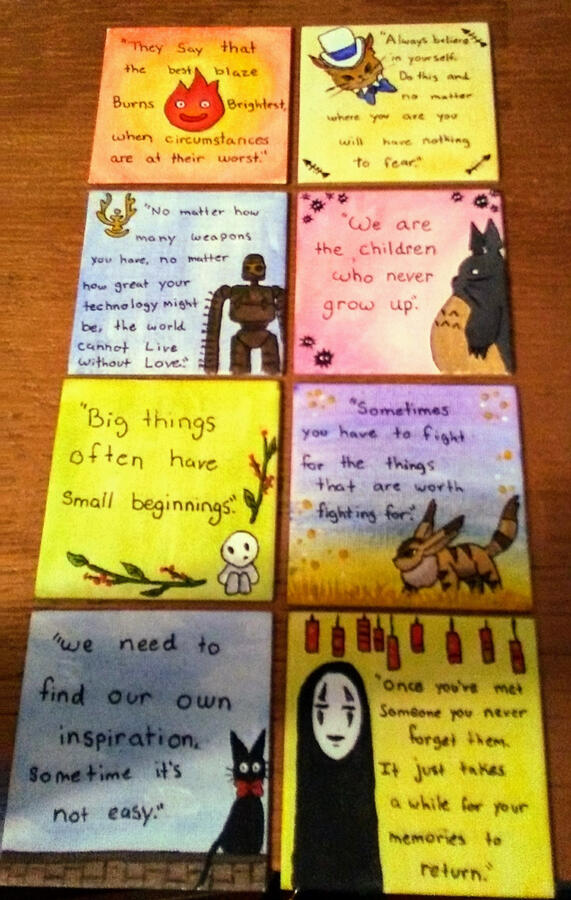 "They Say that
the best blaze
Burns Brightest,
when circumstances
are at their worst."
"Always believe
in yourself.
Do this and
no matter
where you are you
will have nothing
to fear."
"No matter how
many weapons
you have, no matter
how great your
technology might
be, the world
cannot Live
without Love."
"We are
the children
who never
grow up".
"Big things
often have
Small beginnings."
"Sometimes
you have to fight
for the things
that are worth
fighting for."
"we need to
find our own
inspiration.
Sometime it's
not easy."
"Once you've met
Someone you never
forget them.
It just takes
a while for your
memories to
return."